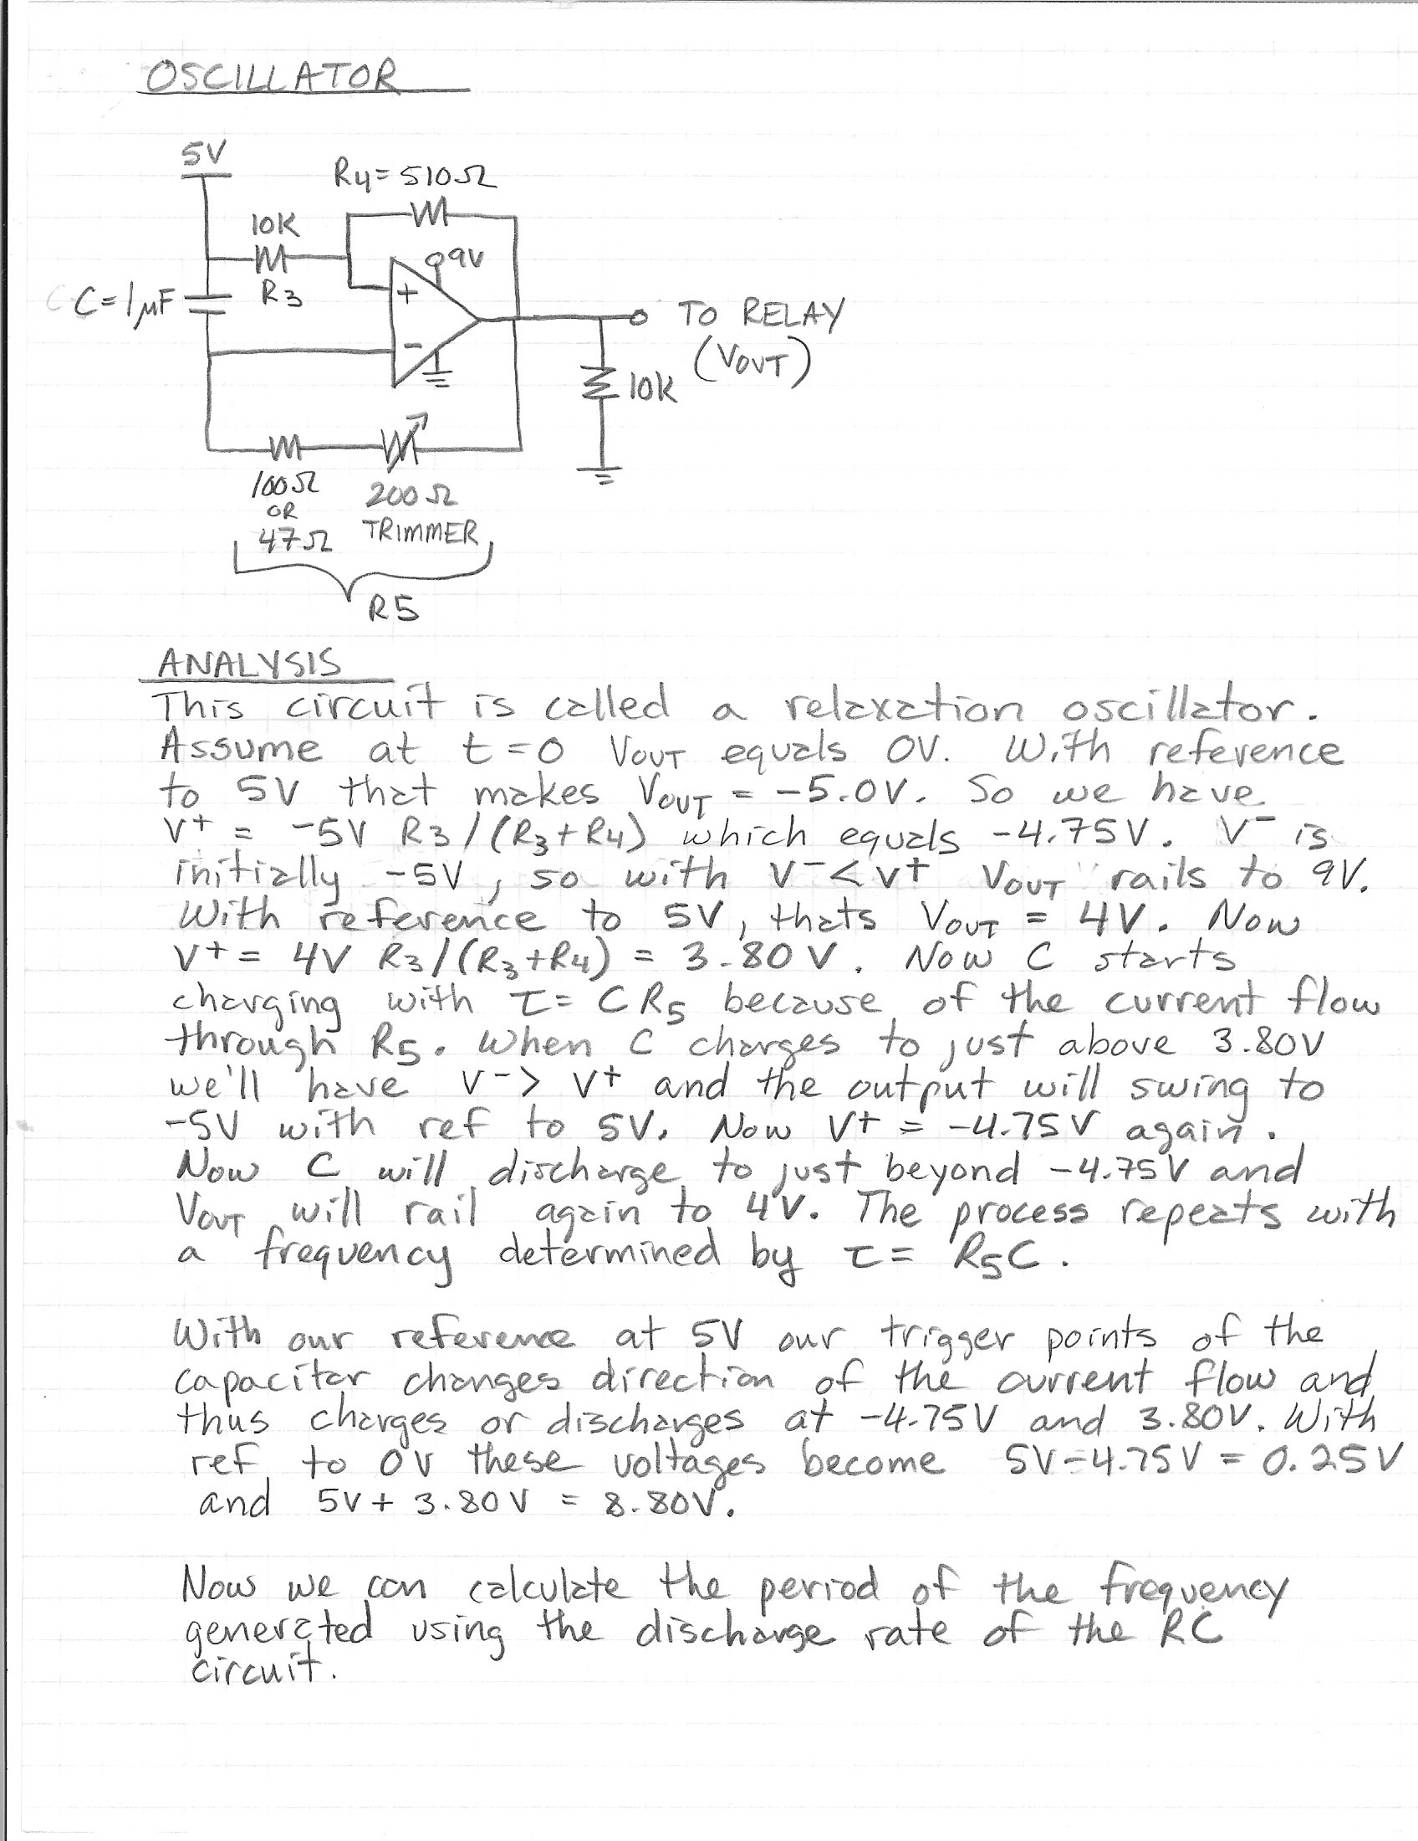 OSCILLATOR
5V
R4=510Ω
10K
9V
R3
C=1μF
+
-
TO RELAY
(VOUT)
10K
100Ω
OR
47Ω
200Ω
TRIMMER
R5
ANALYSIS
This circuit is called a relaxation oscillator.
Assume at t=0 VOUT equals 0V. With reference
to 5V that makes VOUT = -5.0V. So we have
V+ = -5V R3/(R3+R4) which equals -4.75V. V- is
initially -5V, so with V-<V+ VOUT rails to 9V.
With reference to 5V, thats VOUT = 4V. Now
V+ = 4V R3/(R3+R4) = 3.80V. Now C starts
charging with τ= CR5 because of the current flow
through R5. When C charges to just above 3.80V
we'll have V-> V+ and the output will swing to
-5V with ref to 5V. Now V+ = -4.75V again.
Now C will discharge to just beyond -4.75V and
VOUT will rail again to 4V. The process repeats with
a frequency determined by τ= R5C.
With our reference at 5V our trigger points of the
capacitor changes direction of the current flow and
thus charges or discharges at -4.75V and 3.80V. With
ref to 0V these voltages become 5V-4.75V = 0.25V
and 5V+3.80V = 8.80V.
Now we can calculate the period of the frequency
generated using the discharge rate of the RC
circuit.